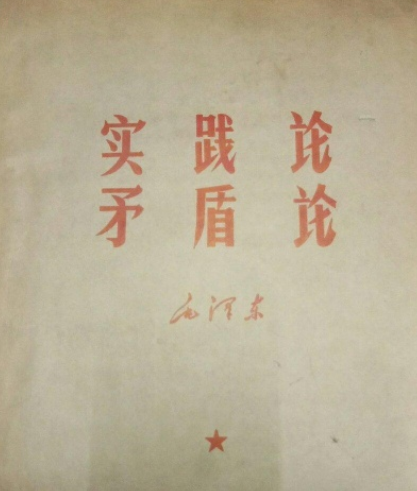 实践论
矛盾论
毛泽东